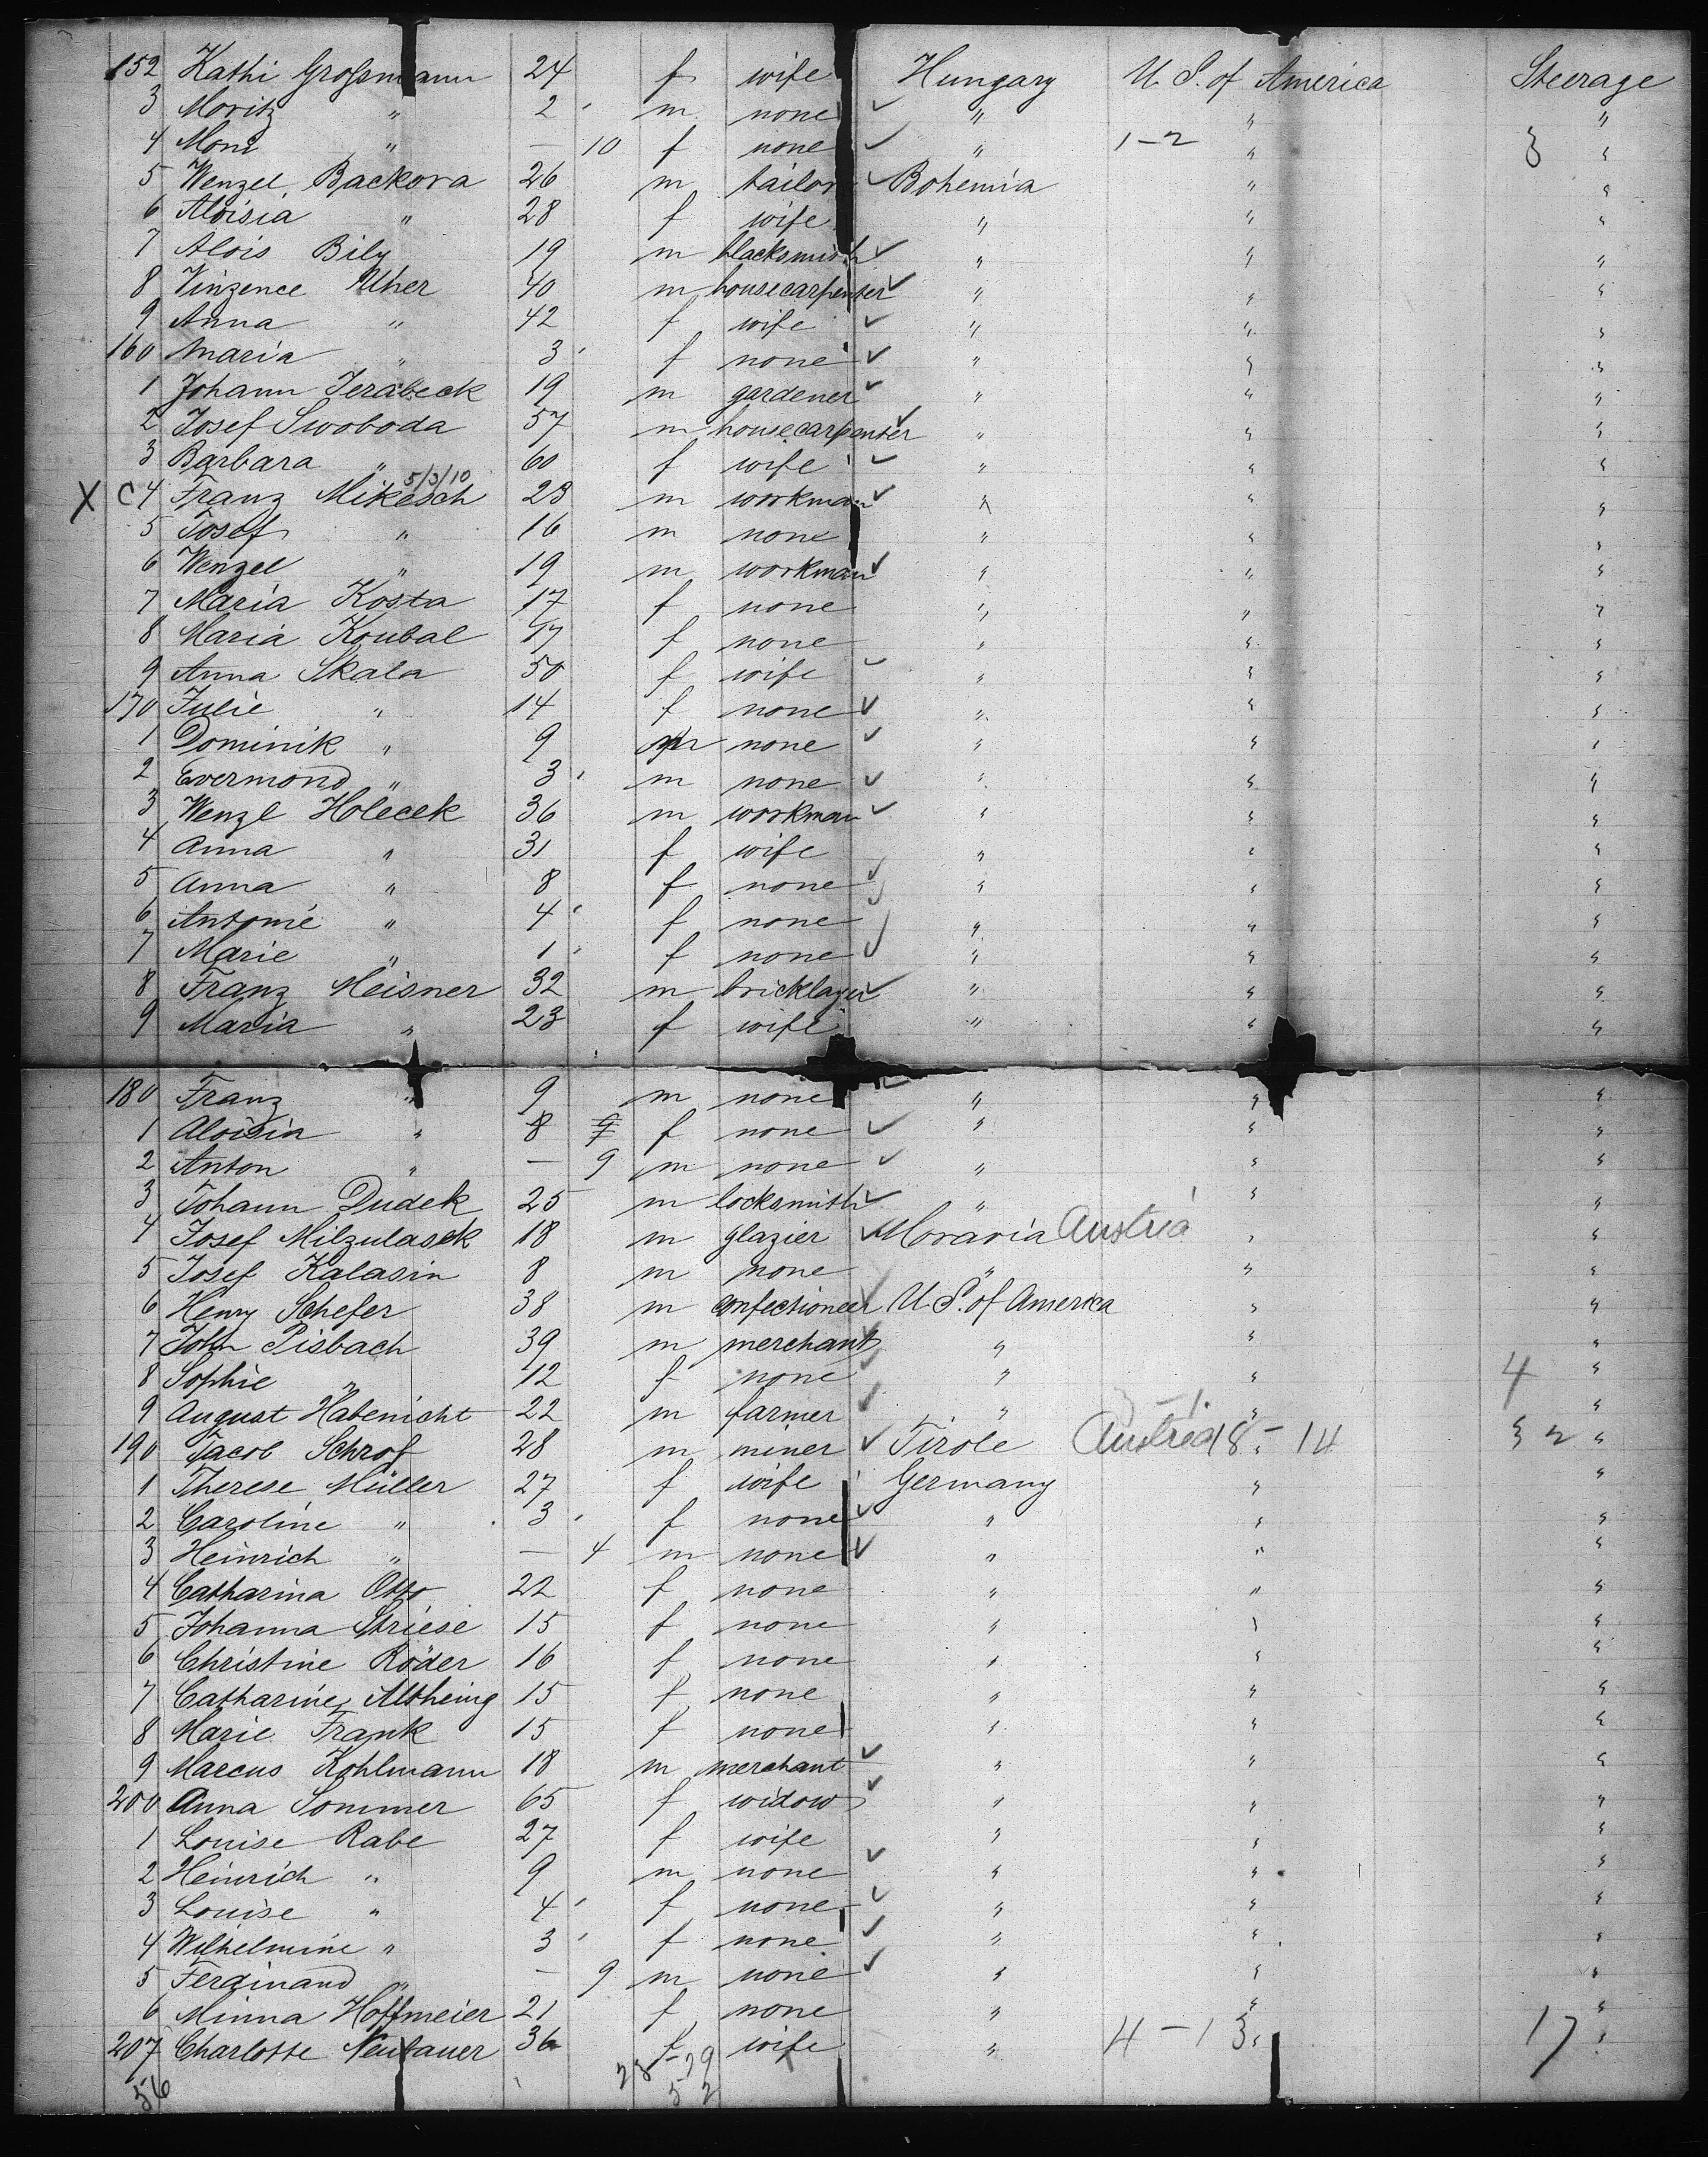 152 Kathi Grossmann 24 f wife Hungary U. S. of America Steerage
3 Moritz " 2 m none " " "
4 Moni " — 10 f none " 1-2 " 3 "
5 Wenzel Backova 26 m tailor Bohemia " "
6 Aloisia " 28 f wife " " "
7 Alois Bily 19 m blacksmith " " "
8 Vinzence Uher 40 m housecarpenter " " "
9 Anna " 42 f wife " " "
160 Maria " 3 f none " " "
1 Johann Jerabeck 19 m gardener " " "
2 Josef Swoboda 57 m housecarpenter " " "
3 Barbara " 60 f wife " " "
5/3/10
X C 4 Franz Mikesch 23 m workman " " "
5 Josef " 16 m none " " "
6 Wenzel " 19 m workman " " "
7 Maria Kosta 17 f none " " "
8 Maria Koubal 17 f none " " "
9 Anna Skala 50 f wife " " "
170 Julie " 14 f none " " "
1 Dominik " 9 m none " " "
2 Evermond " 3 m none " " "
3 Wenzl Holecek 36 m workman " " "
4 Anna " 31 f wife " " "
5 Anna " 8 f none " " "
6 Antonie " 4 f none " " "
7 Marie " 1 f none " " "
8 Franz Meisner 32 m bricklayer " " "
9 Maria " 23 f wife " " "
180 Franz " 9 m none " " "
1 Aloisia " 8 f none " " "
2 Anton " — 9 m none " " "
3 Johann Dudek 25 m locksmith " " "
4 Josef Milzulasek 18 m glazier Moravia Austria " "
5 Josef Kalasin 8 m none " " "
6 Henry Schefer 38 m confectioneer U. S. of America " "
7 John Pisbach 39 m merchant " " "
8 Sophie " 12 f none " " 4 "
9 August Habenicht 22 m farmer " " "
190 Jacob Schrof 28 m miner Tirole Austria 18 - 14 " 2 "
1 Therese Müller 27 f wife Germany " "
2 Caroline " 3 f none " " "
3 Heinrich " — 4 m none " " "
4 Catharina Otto 22 f none " " "
5 Johanna Striese 15 f none " " "
6 Christine Röder 16 f none " " "
7 Catharine Altheing 15 f none " " "
8 Marie Frank 15 f none " " "
9 Marcus Kohlmann 18 m merchant " " "
200 Anna Sommer 65 f widow " " "
1 Louise Rabe 27 f wife " " "
2 Heinrich " 9 m none " " "
3 Louise " 4 f none " " "
4 Wilhelmine " 3 f none " " "
5 Ferdinand " — 9 m none " " "
6 Minna Hoffmeier 21 f none " " "
207 Charlotte Neubauer 36 f wife " 4-13 " 17 "
56 23-29
52